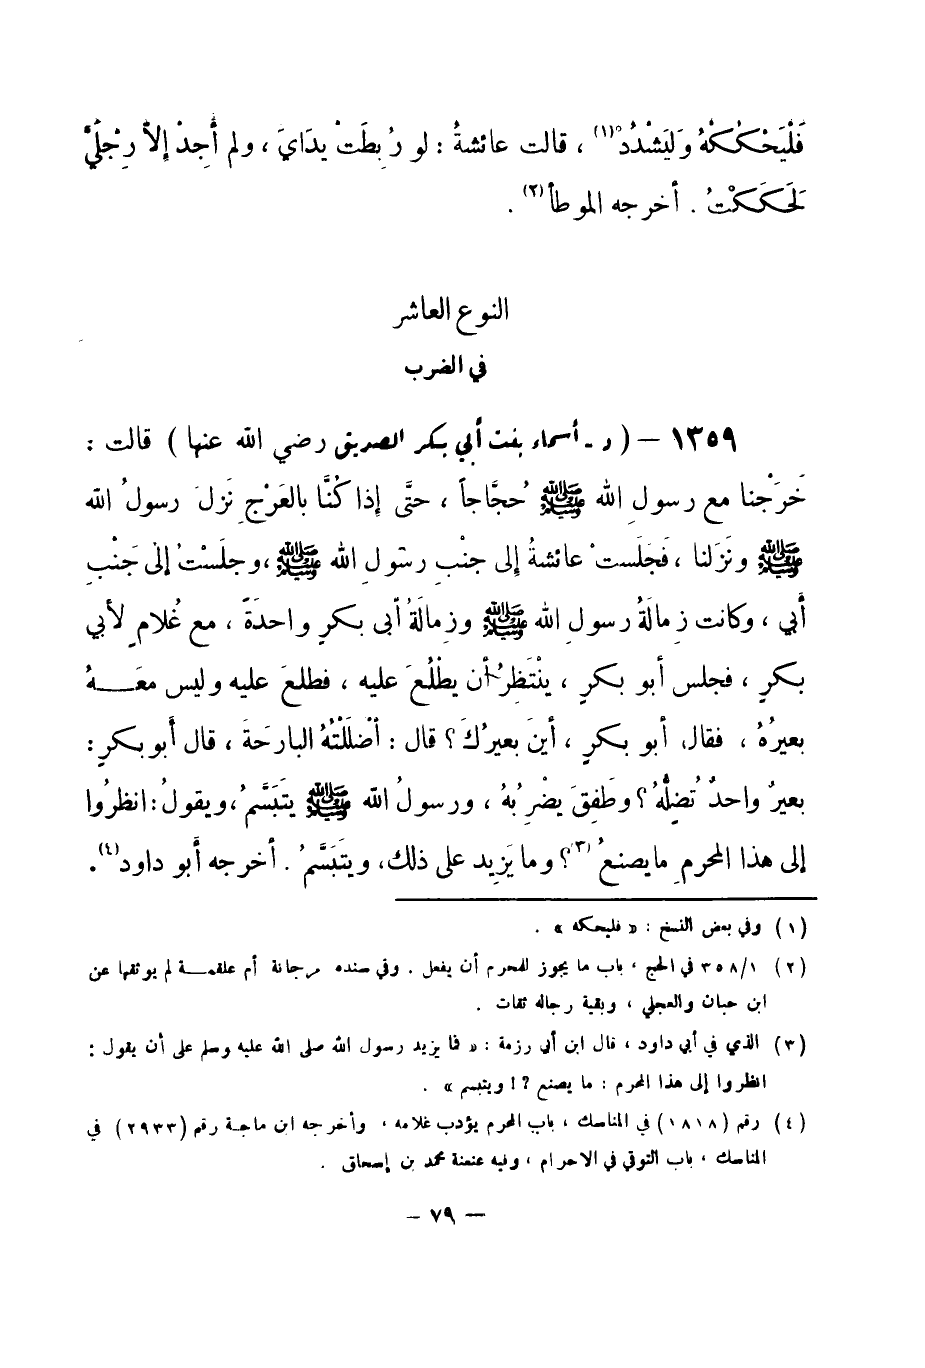 فَلْيَحْكُكْهُ وَلَيَشْدُدْ(١) ، قالت عائشةُ : لو رُبِطَتْ يدَايَ ، ولم أجِدْ إلاَّ رِجْلَيَّ
لَحَكَكْتُ . أخرجه الموطأ(٢) .
النوع العاشر
في الضرب
١٣٥٩ – ( د - أسماء بنت أبي بكر الصديق رضي الله عنها ) قالت :
خَرَجْنا مع رسولِ الله ﷺ حُجَّاجاً ، حتَّى إذا كُنَّا بالعَرْجِ نَزلَ رسولُ الله
ﷺ ونَزَلنا ، فَجَلَستْ عائشةُ إلى جنْبِ رسولِ الله ﷺ ، وجلَسْتُ إلى جَنْبِ
أبي ، وكانت زِمالَةُ رسولِ الله ﷺ وزِمالَةُ أبى بكرٍ واحدَةً ، مع غُلامٍ لأبي
بكرٍ ، فجلس أبو بكرٍ ، ينْتَظِرُ أن يطْلُعَ عليه ، فطلعَ عليه وليس معَــهُ
بعيرُهُ ، فقال أبو بكرٍ ، أينَ بعيرُكَ ؟ قال : أضْلَلْتُهُ البارحَةَ ، قال أبو بكرٍ :
بعيرٌ واحدٌ تُضِلُّهُ ؟ وطَفِقَ يضْرِبُهُ ، ورسولُ الله ﷺ يتَبَسَّمُ ، ويقولُ : انظرُوا
إلى هذا المحرمِ مايصنعُ (٣) ؟ وما يَزِيد على ذلك ، ويتَبَسَّمُ . أخرجه أبو داود(٤) .
(١) وفي بعض النسخ : « فليحكه » .
(٢) ٣٥٨/١ في الحج ، باب ما يجوز للمحرم أن يفعل . وفي سنده مرجانة أم علقمــة لم يوثقها عن
ابن حبان والعجلي ، وبقية رجاله ثقات .
(٣) الذي في أبي داود ، قال ابن أبي رزمة : « فما يزيد رسول الله صلى الله عليه وسلم على أن يقول :
انظروا إلى هذا المحرم : ما يصنع ؟! ويتبسم » .
(٤) رقم (١٨١٨) في المناسك ، باب المحرم يؤدب غلامه ، وأخرجه ابن ماجة رقم (٢٩٣٣) في
المناسك ، باب التوقي في الاحرام ، وفيه عنعنة محمد بن إسحاق .
— ٧٩ –